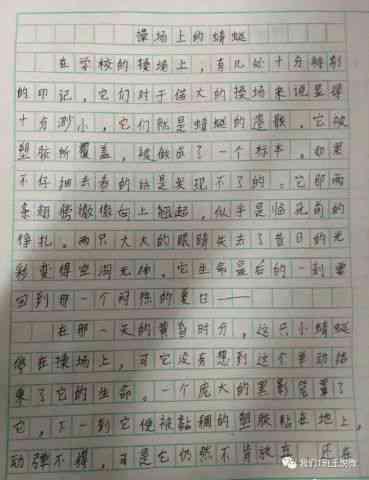 操场上的蜻蜓
在学校的操场上，有几处十分特别
的印记，它们对于偌大的操场来说显得
十分渺小，它们就是蜻蜓的遗骸。它被
塑胶所覆盖，被做成了一个标本。如果
不仔细去看的话是发现不了的。它那两
条翅膀微微向上翘起，似乎是临死前的
挣扎。两只大大的眼睛失去了昔日的光
彩变得空洞无神。它生命最后的一刻要
回到那一个闷热的夏日——
在那一天的黄昏时分，这只小蜻蜓
停在操场上，可它没有想到这个举动结
束了它的生命。一个庞大的黑影笼罩了
它，下一刻它便被黏稠的塑胶黏在地上，
动弹不得，可是它仍然不肯放弃，还在
我们1班王悦微